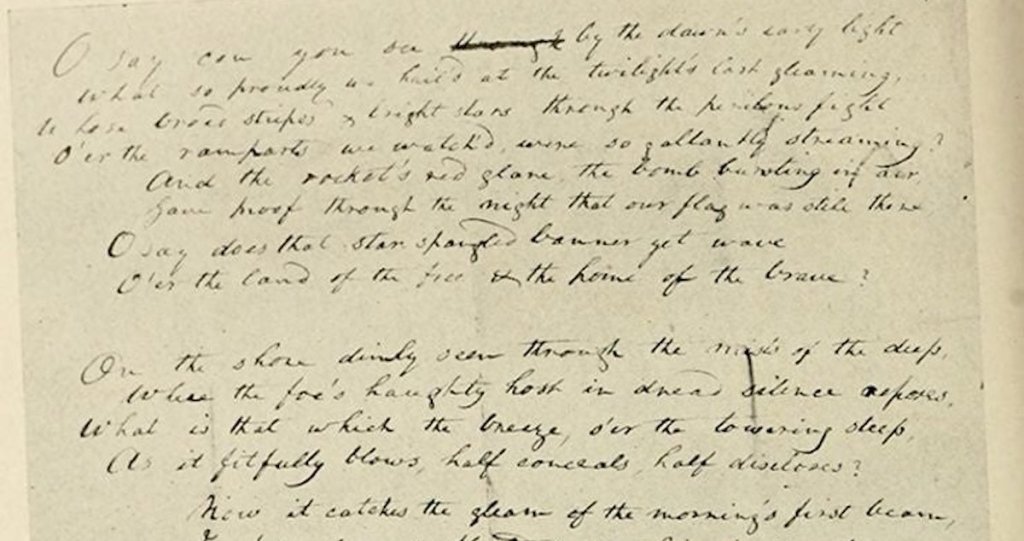 O say can you see ~~through~~ by the dawn's early light
What so proudly we hail'd at the twilight's last gleaming,
Whose broad stripes & bright stars through the perilous fight
O'er the ramparts we watch'd, were so gallantly streaming?
And the rocket's red glare, the bomb bursting in air,
Gave proof through the night that our flag was still there
O say does that star spangled banner yet wave
O'er the land of the free & the home of the brave?
On the shore dimly seen through the mists of the deep,
Where the foe's haughty host in dread silence reposes,
What is that which the breeze, o'er the towering steep,
As it fitfully blows, half conceals, half discloses?
Now it catches the gleam of the morning's first beam,